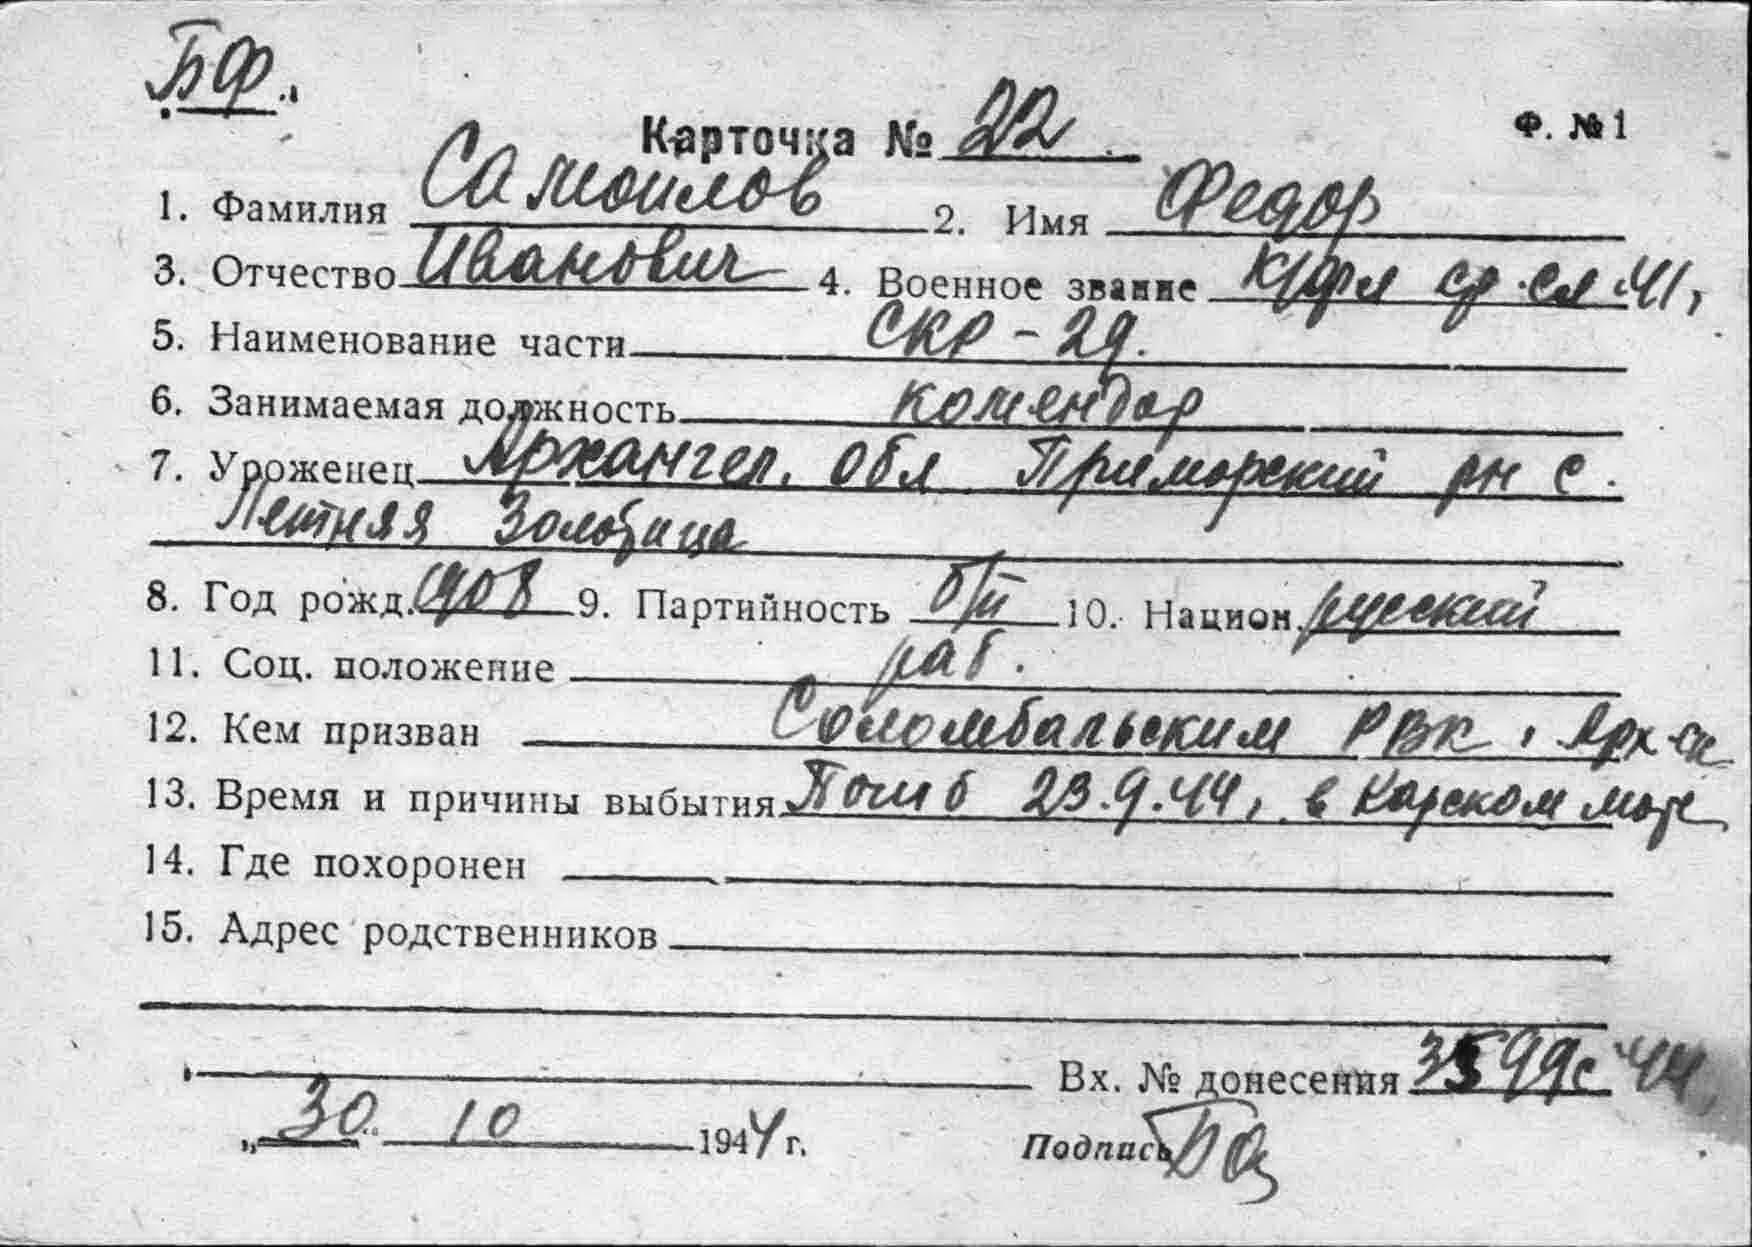 БФ.
Карточка № 22 Ф. № 1
1. Фамилия Самоилов 2. Имя Федор
3. Отчество Иванович 4. Военное звание К/фл ср. сл. 41,
5. Наименование части СКР - 29.
6. Занимаемая должность комендор
7. Уроженец Архангел. обл Приморский рн с.
Летняя Золотица
8. Год рожд. 1908 9. Партийность б/п 10. Национ. русский
11. Соц. положение раб.
12. Кем призван Соломбальским РВК, Арх-ск
13. Время и причины выбытия Погиб 23.9.44, в Карском море
14. Где похоронен
15. Адрес родственников
Вх. № донесения 3599с 44
„30" 10 1944 г. Подпись